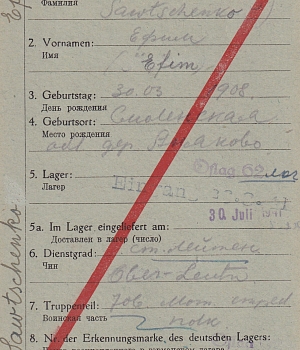 Фамилия
Sawtschenko
2. Vornamen: Ефим
Имя
Efim
3. Geburtstag: 30.03 1908.
День рождения
4. Geburtsort: Смоленская
Место рождения
обл дер.
Oflag 62
5. Lager:
Лагер
30 Juli 1941
5a. Im Lager eingeliefert am:
Доставлен в лагер (число)
6. Dienstgrad: ст. лейтен.
Чин
Ober-Leutn
7. Truppenteil: 706 мот стрел
Воинская часть полк
8. Nr. der Erkennungsmarke des deutschen Lagers:
Sawtschenko